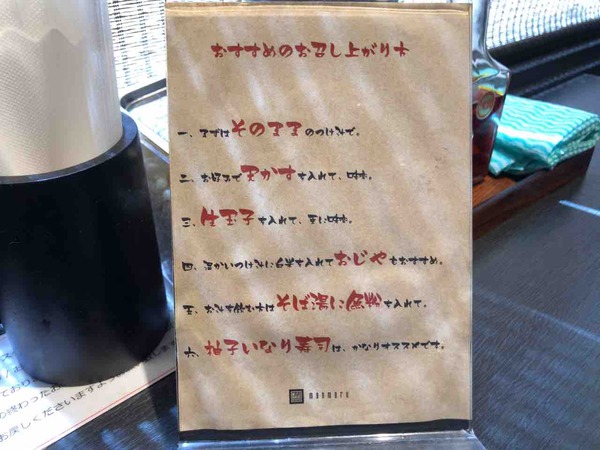 おすすめのお召し上がり方
一、まずはそのままのつけ汁で。
二、お好みで天かすを入れて、一味。
三、生玉子を入れて、更に一味。
四、温かいつけ汁に白米を入れておじやもおすすめ。
五、お好み焼
そば湯に金粉を入れて。
六、柚子いなり寿司は、かなりオススメです。
manmaru
ており
の終わったお
お戻しくださいますよう
します